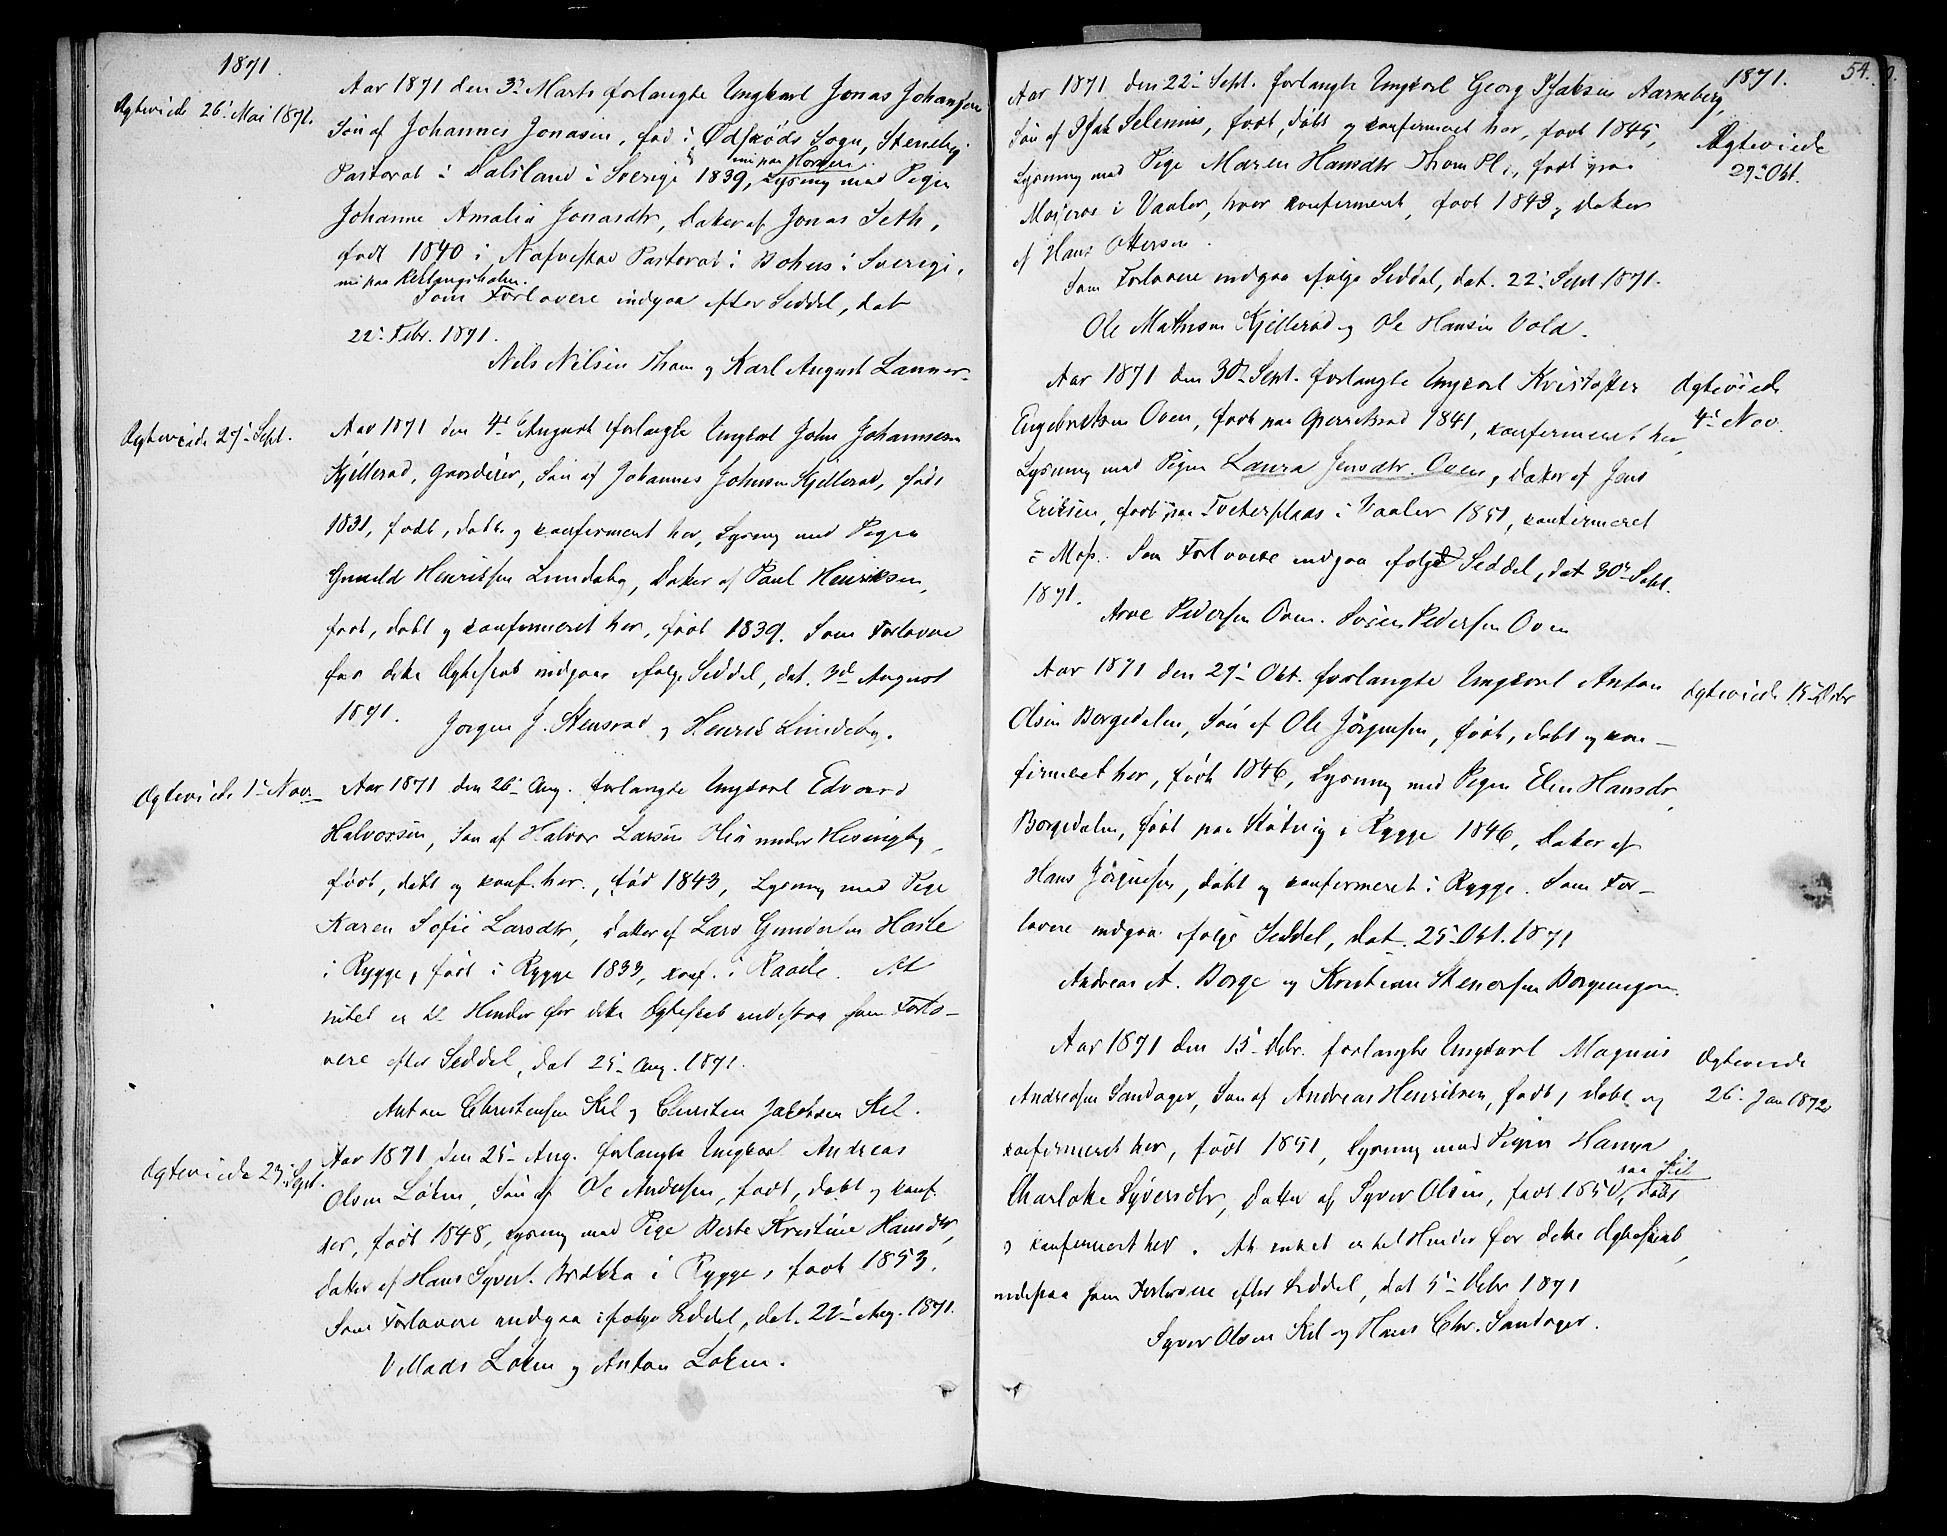 1871.
Ægteviede 26. Mai 1871.
Aar 1871 den 3. Marts forlangte Ungkarl Jonas Johansen
Søn af Johannes Jonasen, fød i Ødskøds Sogn, Steneby
nu paa Horgen
Pastorat i Dalsland i Sverige 1839, Lysning med Pigen
Johanne Amalia Jonasdtr, Datter af Jonas Seth,
født 1840 i Pastorat i Bohus i Sverige,
nu paa
Som Forlovere indgaa efter Seddel, dat
22. Febr. 1871.
Nils Nilsen Thom og Karl August Lanner
Ægteviede 27. Sept.
Aar 1871 den 4. August forlangte Ungkarl John Johannesen
Kjellerød, Gaardeier, Søn af Johannes Johnsen Kjellerød, født
1831, født, døbt og confirmeret her, Lysning med Pigen
Gunild Henriksen Lundeby, Datter af Paul Henriksen,
født, døbt og confirmeret her, født 1839. Som Forlovere
for dette Ægteskab indgaa ifølge Seddel, dat. 3d August
1871.
Jørgen J. Stensrød og Henrik Lundeby.
Ægteviede 1. Nov.
Aar 1871 den 26. Aug. forlangte Ungkarl Edvard
Halvorsen, Søn af Halvor Larsen Olia under Huseby,
født, døbt og conf. her, fød 1843, Lysning med Pige
Karen Sofie Larsdtr, Datter af Lars Gundersen Haste
i Rygge, født i Rygge 1833, conf. i Raade. At
intet er til Hinder for dette Ægteskab indestaa som Forlo-
vere efter Seddel, dat 25. Aug. 1871.
Anton Christensen Kil og Christen Jacobsen Kil.
Ægteviede 23. Sept.
Aar 1871 den 25. Aug. forlangte Ungkarl Andreas
Olsen Løken, Søn af Ole Andersen, født, døbt og conf.
her, født 1848, Lysning med Pige Berte Kristine Hansdtr,
Datter af Hans Syvert. Brekka i Rygge, født 1853.
Som Forlovere indgaa ifølge Seddel, dat. 22. Aug. 1871.
Villads Løken og Anton Løken.
1871.
54.
Aar 1871 den 22. Sept. forlangte Ungkarl Georg Isaksen Aarneberg,
Søn af Isak Selenius, født, døbt og confirmeret her, født 1845,
Ægteviede
27. Okt.
Lysning med Pige Maren Hansdtr Thom Pl., født paa
Mosjerøs i Vaaler, hvor confirmeret, født 1843, Datter
af Hans Ottersen.
Som Forlovere indgaa ifølge Seddel, dat. 22. Sept 1871.
Ole Mathisen Kjellerød og Ole Hansen Vold.
Ægteviede
4. Nov.
Aar 1871 den 30. Sept. forlangte Ungkarl Kristoffer
Engebretsen Oven, født paa 1841, confirmeret her,
Lysning med Pigen Laura Jensdtr. Oven, Datter af Jens
Eriksen, født paa Tveterplads i Vaaler 1851, confirmeret
i Moss. Som Forlovere indgaa ifølge Seddel, dat 30. Sept.
1871.
Arve Pedersen Oven. Søren Pedersen Oven
Aar 1871 den 27. Okt. forlangte Ungkarl Anton
Ægteviede 15. Debr
Olsen Borgedalen, Søn af Ole Jørgensen, født, døbt og con-
firmeret her, født 1846, Lysning med Pigen Elen Hansdtr,
Borgedalen, født paa Støtvig i Rygge 1846, Datter af
Hans Jørgensen, døbt og confirmeret i Rygge. Som For-
lovere indgaa ifølge Seddel, dat. 25. Okt. 1871
Andreas A. Borge og Kristian Stenersen Borgeengen.
Aar 1871 den 15. Debr. forlangte Ungkarl Magnus
Ægteviede
26. Jan 1872
Andreasen Sandager, Søn af Andreas Henriksen, født, døbt og
confirmeret her, født 1851, Lysning med Pigen Hanna
paa Kil
Charlotte Syversdtr, Datter af Syver Olsen, født 1850, døbt
og confirmeret her. At intet er til Hinder for dette Ægteskab,
indestaa som Forlovere efter Seddel, dat 5. Debr 1871
Syver Olsen Kil og Hans Chr. Sandager.